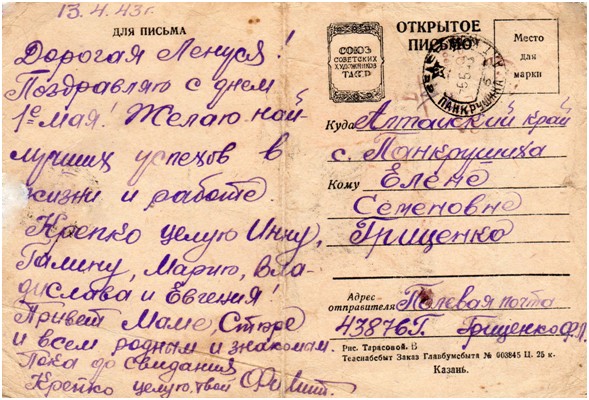 13.4.43г.
ДЛЯ ПИСЬМА
Дорогая Ленуся!
Поздравляю с днем
1го мая! Желаю най-
лучших успехов в
жизни и работе.
Крепко целую Инну,
Галину, Марию, Вла-
дислава и Евгения!
Привет Маме,
и всем родным и знакомам.
Пока до свидания
Крепко целую, твой
ОТКРЫТОЕ
ПИСЬМО
СОЮЗ
СОВЕТСКИХ
ХУДОЖНИКОВ
ТАССР
ПАНКРУШИХА
Место
для
марки
Куда Алтайский край
с. Панкрушиха
Кому Елене
Семеновне
Гриценко
Адрес
отправителя Полевая почта
43876Г. Гриценко Ф.П.
Рис. Тарасовой. В
Техснабсбыт Заказ Главбумсбыта № 003845 Ц. 25 к.
Казань.